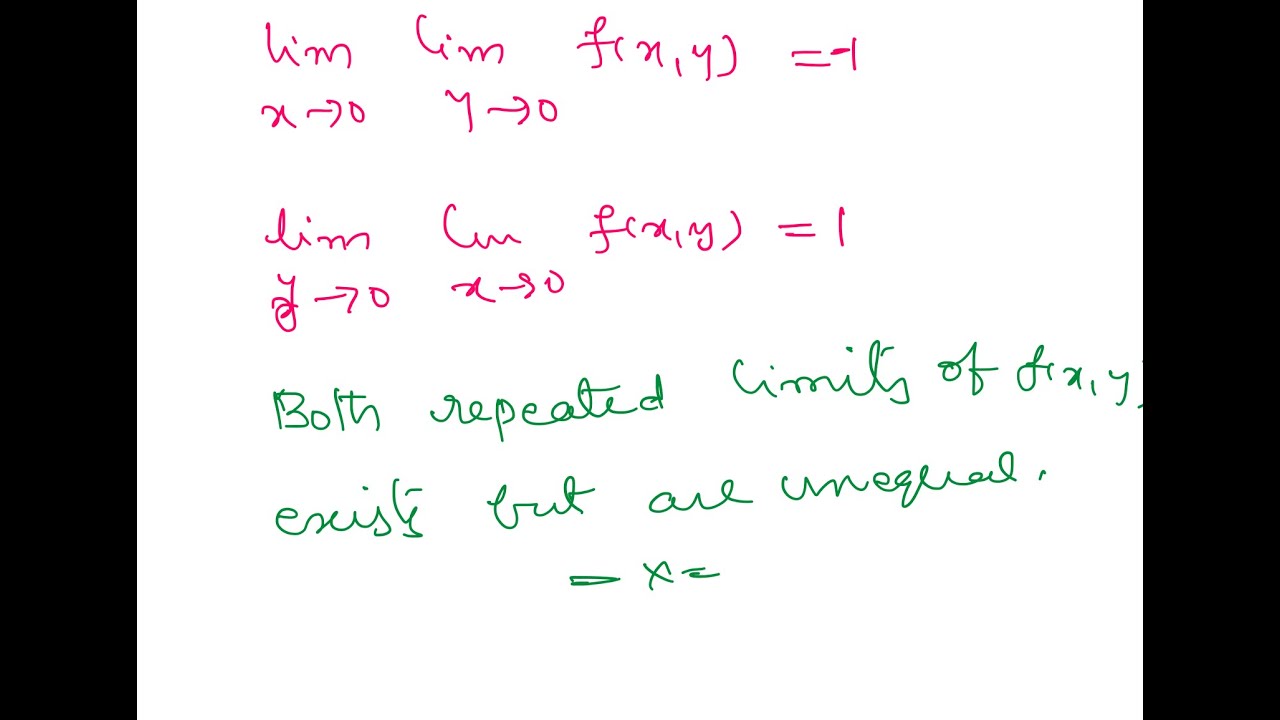 lim lim f(x,y) = -1
x→0 y→0
lim lim f(x,y) = 1
y→0 x→0
Both repeated limits of f(x,y)
exists but are unequal.
— x =